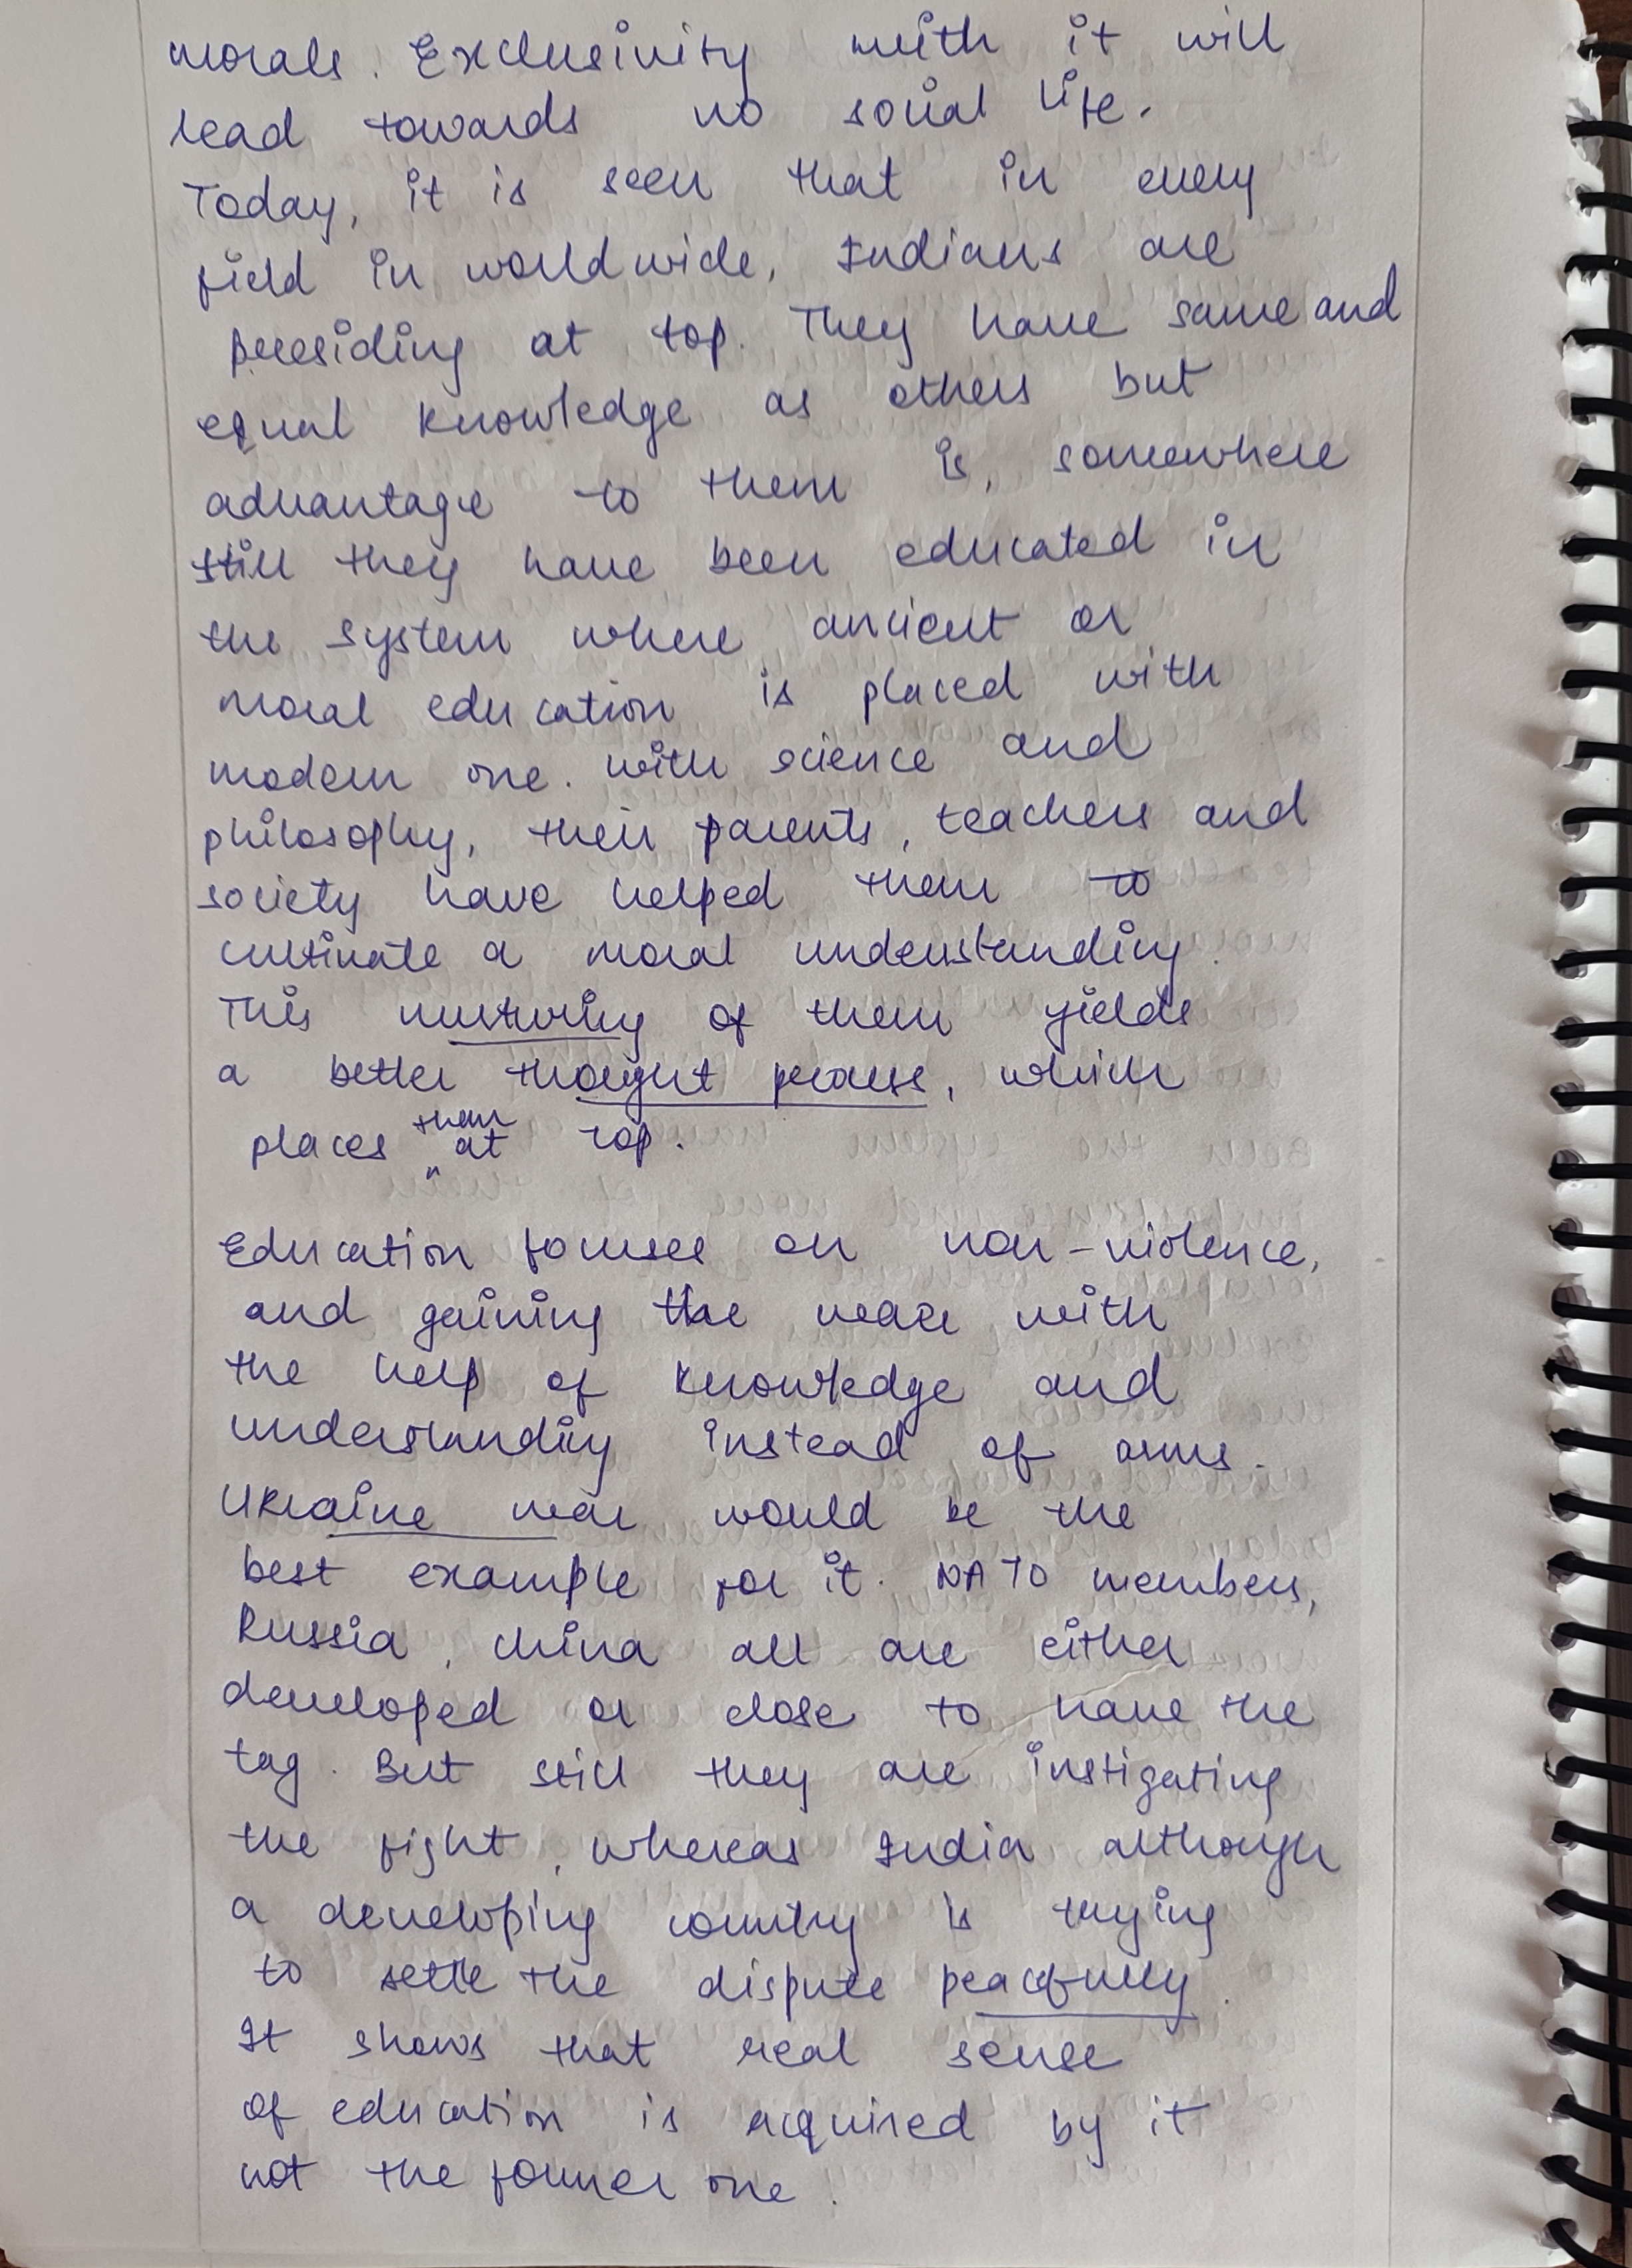 morals. Exclusivity with it will
lead towards no social life.
Today, it is seen that in every
field in worldwide, Indians are
presiding at top. They have same and
equal knowledge as others but
advantage to them is, somewhere
still they have been educated in
the system where ancient or
moral education is placed with
modern one. With science and
philosophy, their parents, teachers and
society have helped them to
cultivate a moral understanding.
This nurturing of them yields
a better thought process, which
places them at top.
Education focuses on non-violence,
and gaining the with
the help of knowledge and
understanding instead of arms.
Ukraine war would be the
best example for it. NATO members,
Russia, China all are either
developed or close to have the
tag. But still they are instigating
the fight, whereas India although
a developing country is trying
to settle the dispute peacefully.
It shows that real sense
of education is acquired by it
not the former one.